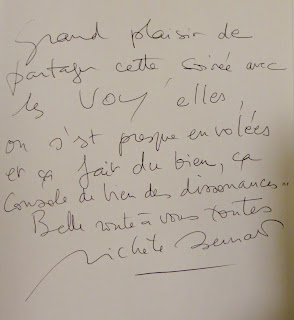 Grand plaisir de
partager cette soirée avec
les VOY'elles,
on s'est presque envolées
et ça fait du bien, ça
Console de bien des dissonances...
Belle route à vous toutes
Michèle Bernard